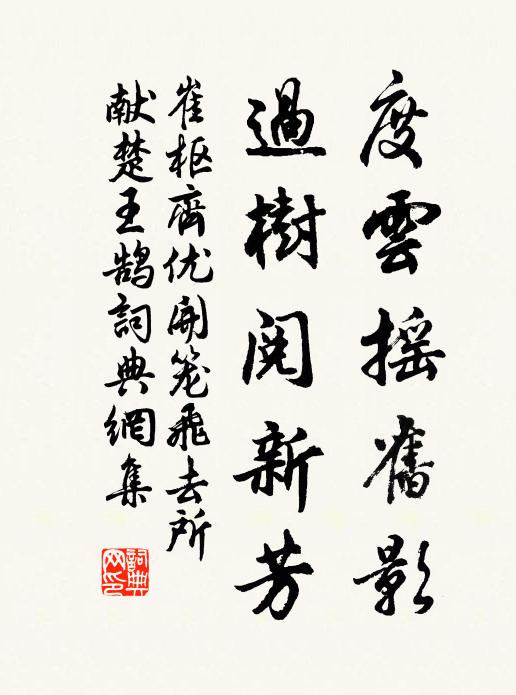 度雲摇舊影
過樹閱新芳
崔枢齊优開笼飛去所
献楚王鹄詞典網集
詞典
网印